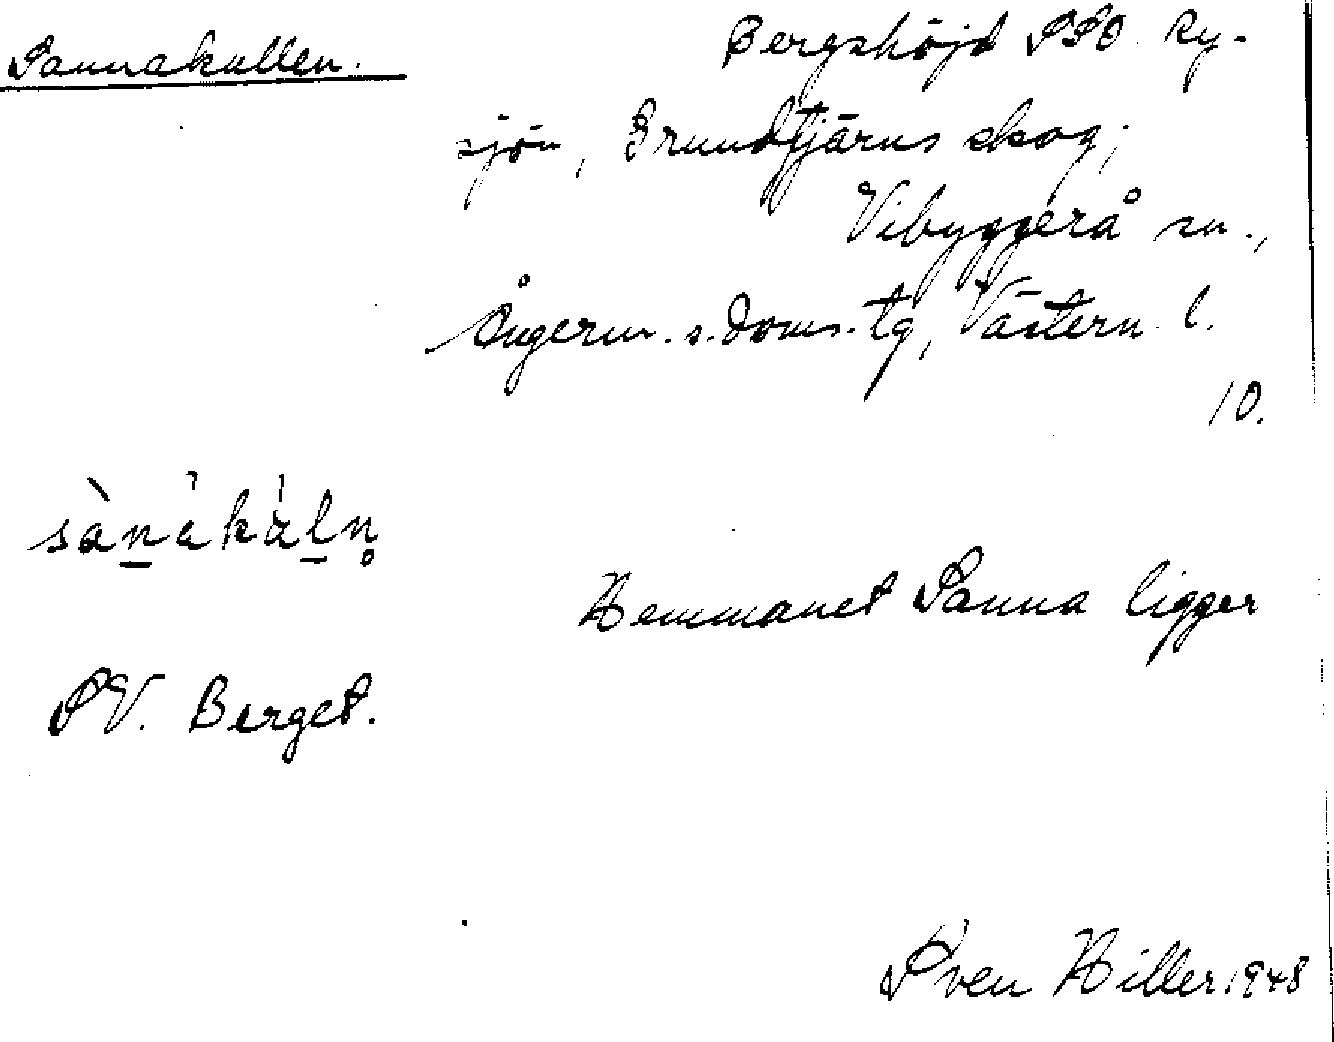 Sannakullen.
Bergshöjd SSO. Ry-
sjön, Grundtjärns skog;
Vibyggerå sn.,
Ångerm. s. doms. tg, Västern. l.
10.
sànakàln̥
Hemmanet Sanna ligger
SV. Berget.
Sven Hiller 1948